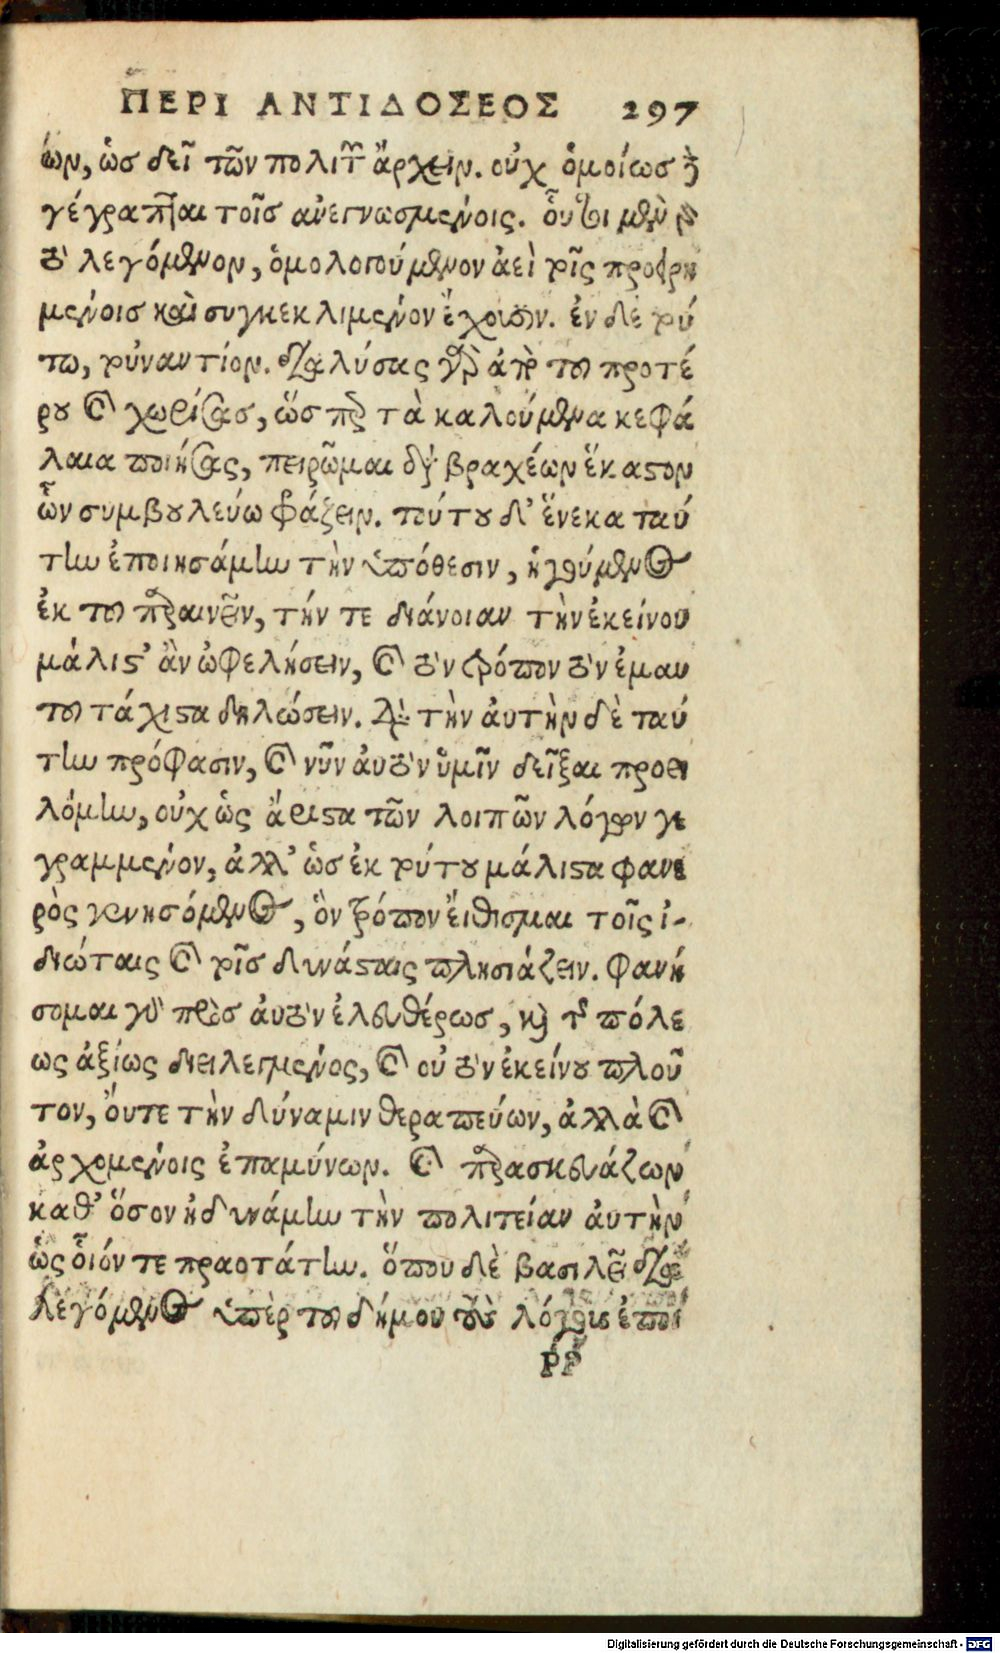 ΠΕΡΙ ΑΝΤΙΔΟΣΕΟΣ 297
ων, ὡσ δεῖ τῶν πολιτῶν ἄρχειν. οὐχ ὁμοίωσ δὲ
γέγραπται τοῖσ ἀνεγνωσμένοις. οὗτοι μὲν γὰρ
τὸ λεγόμενον, ὁμολογούμενον ἀεὶ τοῖς προειρη
μένοισ καὶ συγκεκλιμενον ἔχουσιν. ἐν δὲ τού
τω, τοὐναντίον. ἀπολύσας γὰρ ἀπὸ τοῦ προτέ
ρου καὶ χωρίσας, ὥσπερ τὰ καλούμενα κεφά
λαια ποιήσας, πειρῶμαι διὰ βραχέων ἕκαστον
ὧν συμβουλεύω φράζειν. τούτου δ' ἕνεκα ταύ
την ἐποιησάμην τὴν ὑπόθεσιν, ἡγούμενος
ἐκ τοῦ παραινεῖν, τήν τε διάνοιαν τὴν ἐκείνου
μάλιστ' ἂν ὠφελήσειν, καὶ τὸν τρόπον τὸν ἐμαυ
τοῦ τάχιστα δηλώσειν. διὰ τὴν αὐτὴν δὲ ταύ
την πρόφασιν, καὶ νῦν αὐτὸν ὑμῖν δεῖξαι προει
λόμην, οὐχ ὡς ἄριστα τῶν λοιπῶν λόγων γε
γραμμένον, ἀλλ' ὡσ ἐκ τούτου μάλιστα φανε
ρὸς γενησόμενος, ὃν τρόπον εἴθισμαι τοῖς ἰ-
διώταις καὶ τοῖσ δυνάσταις πλησιάζειν. φανή
σομαι γὰρ πρὸσ αὐτὸν ἐλευθέρωσ, καὶ τῆς πόλε
ως ἀξίως διειλεγμένος, καὶ οὐ τὸν ἐκείνου πλοῦ
τον, οὔτε τὴν δύναμιν θεραπεύων, ἀλλὰ τοῖς
ἀρχομένοις ἐπαμύνων. καὶ παρασκευάζων
καθ' ὅσον ἠδυνάμην τὴν πολιτείαν αὐτὴν
ὡς οἷόν τε πραοτάτην. ὅπου δὲ βασιλεῖ δια
λεγόμενος ὑπὲρ τοῦ δήμου τοὺς λόγους ἐποι
ρρ
Digitalisierung gefördert durch die Deutsche Forschungsgemeinschaft - DFG